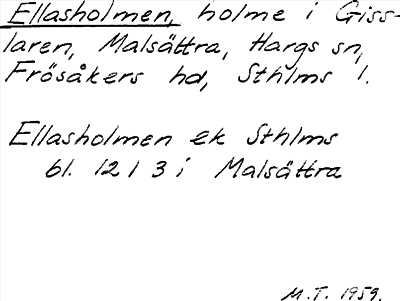 Ellasholmen, holme i Giss-
laren, Malsättra, Hargs sn,
Frösåkers hd, Sthlms l.
Ellasholmen ek Sthlms
bl. 12 1 3 i Malsättra
M.T. 1959.